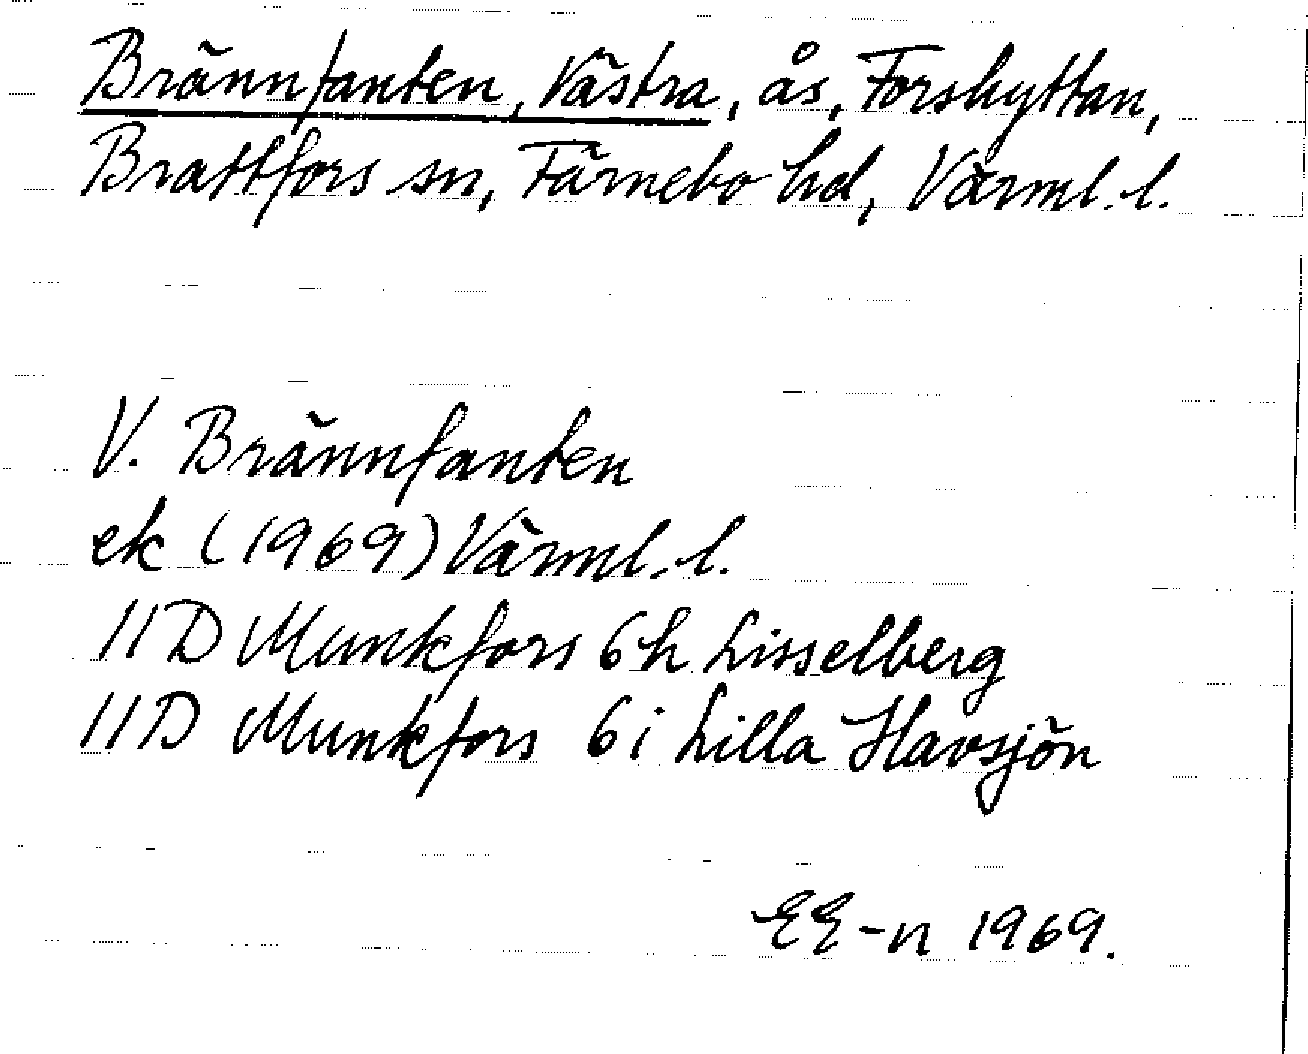 Brännfanten, Västra, ås, Forshyttan,
Brattfors sn, Färnebo hd, Värml. l.
V. Brännfanten
ek (1969) Värml. l.
11D Munkfors 6h Lisselberg
11D Munkfors 6i Lilla Havsjön
EE-n 1969.